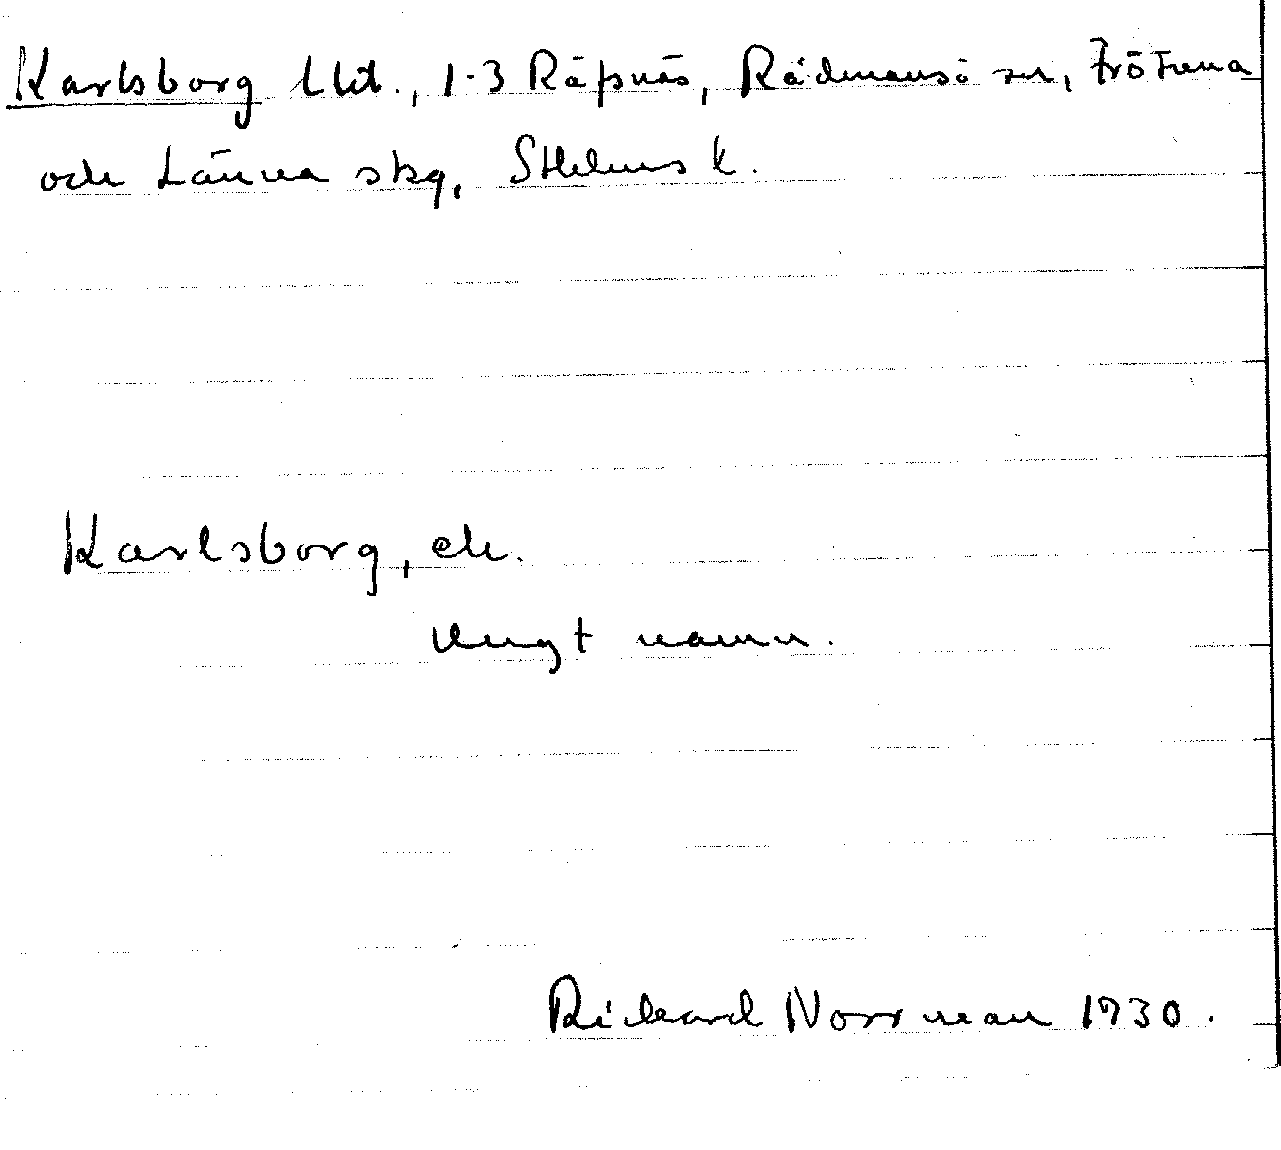 Karlsborg lht., 1-3 Räfsnäs, Rådmansö sn, Frötuna
och Länna skg, Sthlms l.
Karlsborg, eh.
Ungt namn.
Rickard Norrman 1930.